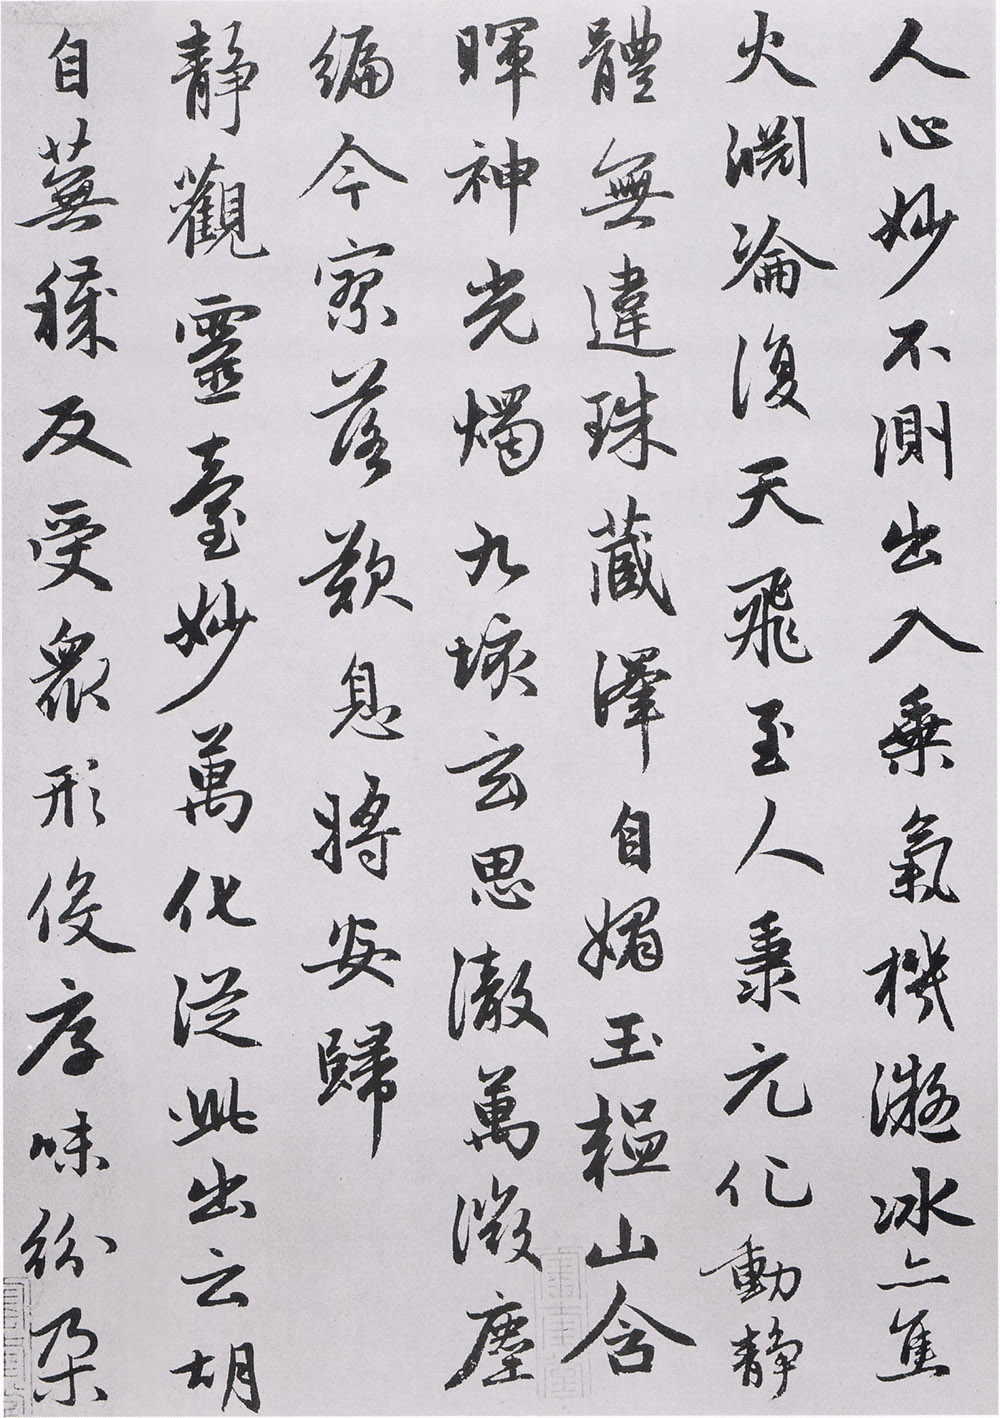 人心妙不測出入乘氣機凝冰亦焦
火淵淪復天飛至人秉元化動靜
體無違珠藏澤自媚玉韞山含
暉神光燭九垓玄思澈萬微塵
編今寥落歎息將安歸
靜觀靈臺妙萬化從此出云胡
自蕪穢反受衆形役厚味紛朵